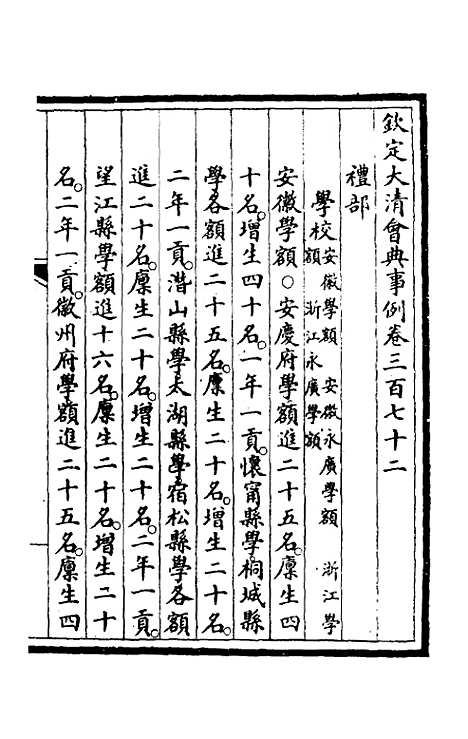 欽定大清會典事例卷三百七十二
禮部
學校 安徽學額 安徽永廣學額 浙江學
額 浙江永廣學額
安徽學額○安慶府學額進二十五名。廩生四
十名。增生四十名。一年一貢。懷甯縣學桐城縣
學各額進二十五名。廩生二十名。增生二十名。
二年一貢。潛山縣學太湖縣學宿松縣學各額
進二十名。廩生二十名。增生二十名。二年一貢。
望江縣學額進十六名。廩生二十名。增生二十
名。二年一貢。徽州府學額進二十五名。廩生四